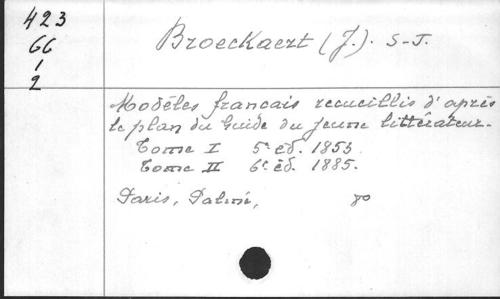 423
66
1
2
Broeckaert (J.). S-J.
Modèles français recueillis d'après
le plan du Guide du jeune littérateur.
Tome I 5e éd. 1853
Tome II 6e éd. 1885.
Paris, Palmé, 8o